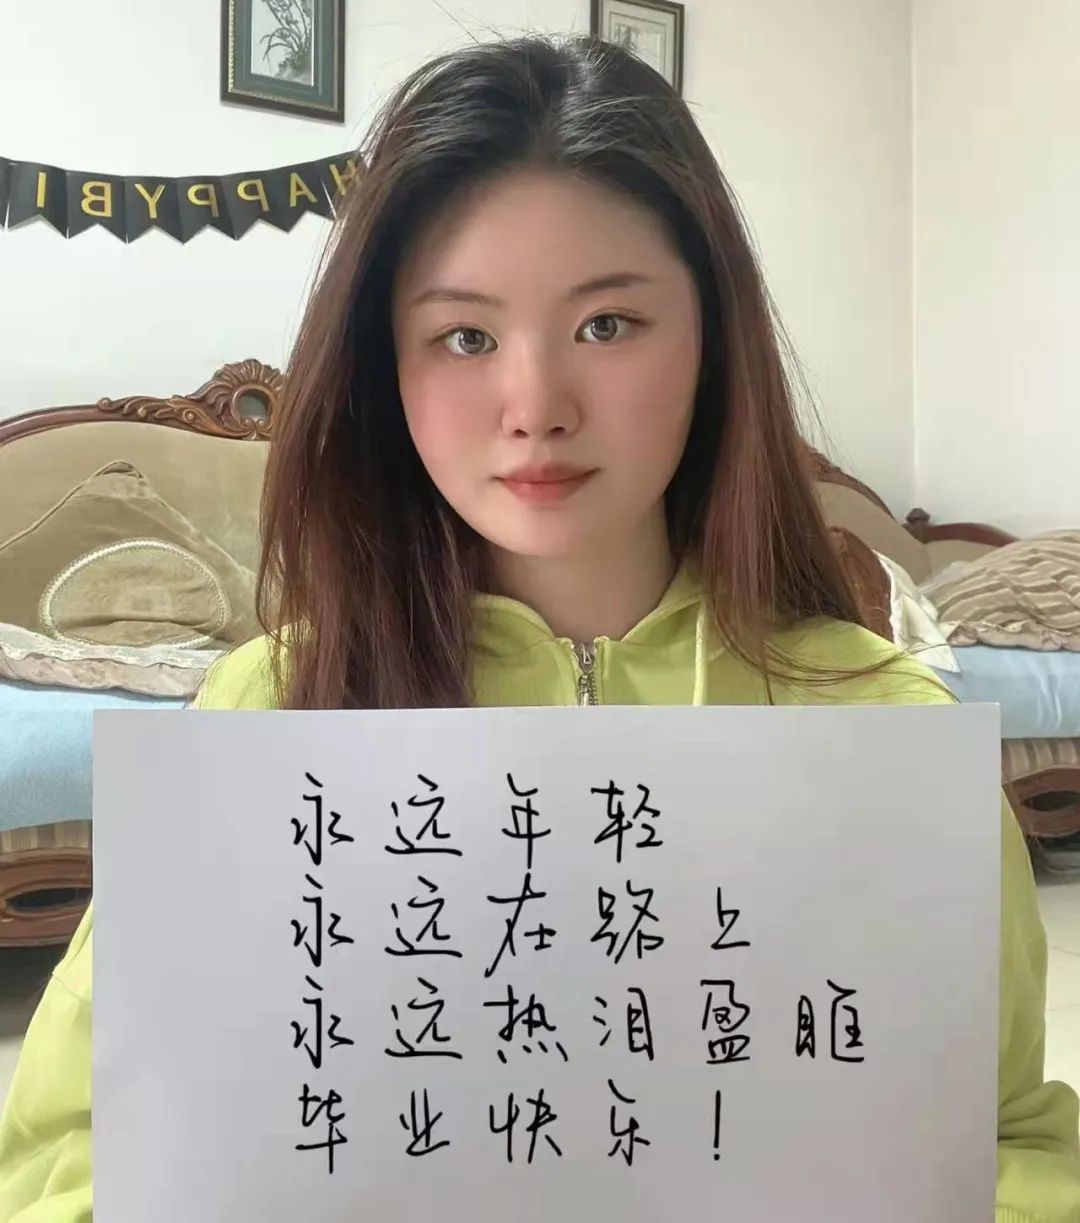 HAPPYBI
永远年轻
永远在路上
永远热泪盈眶
毕业快乐！